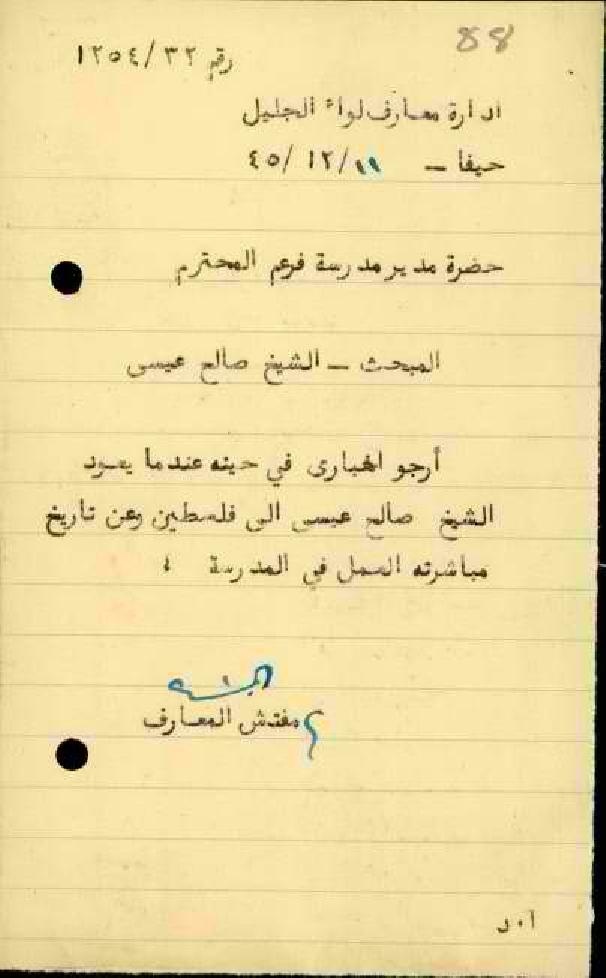 88
رقم ١٢٥٤/٣٢
ادارة معارف لواء الجليل
حيفا – ١٩/١٢/٤٥
حضرة مدير مدرسة فرعم المحترم
المبحث – الشيخ صالح عيسى
أرجو اخباري في حينه عندما يعود
الشيخ صالح عيسى الى فلسطين وعن تاريخ
مباشرته العمل في المدرسة ؛
مفتش المعارف